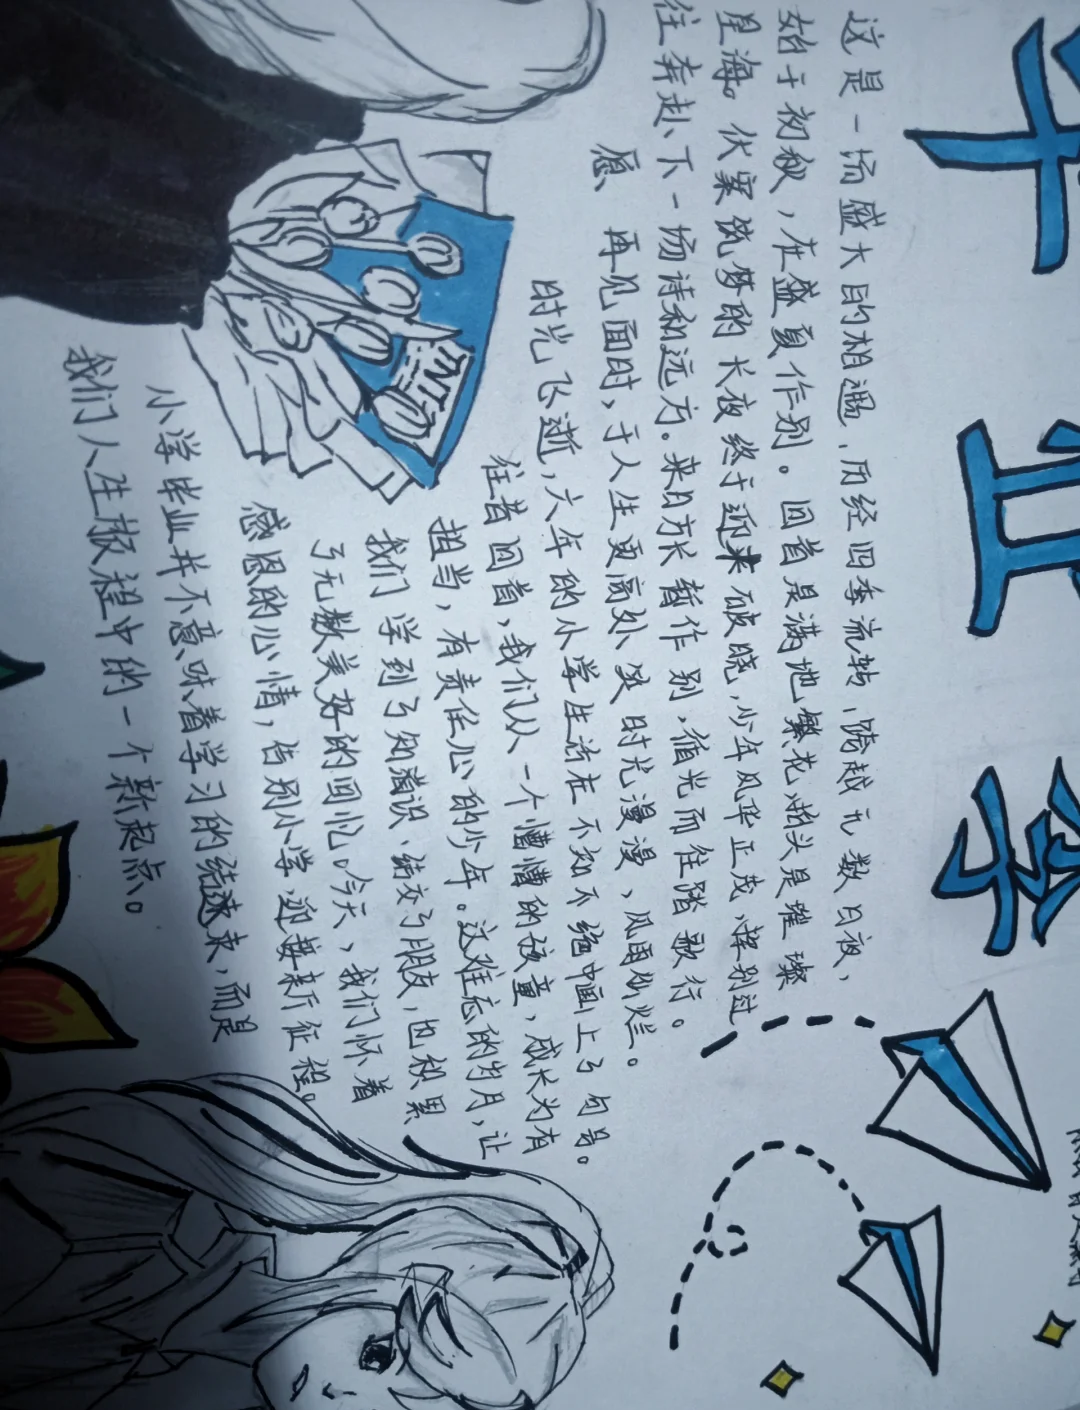 毕业季
这是一场盛大的相遇，历经四季流转，跨越无数日夜，
始于初秋，在盛夏作别。回首是满地繁花，抬头是璀璨
星海。伏案筑梦的长夜终于迎来破晓，少年风华正茂，挥别过
往奔赴下一场诗和远方。来日方长暂作别，循光而往踏歌行。
愿 再见面时，于人生更高处 笑时光漫漫，风雨灿烂。
时光飞逝，六年的小学生活在不知不绝中画上了句号。
往昔回首，我们从一个懵懵的孩童，成长为有
担当，有责任心的少年。这难忘的岁月，让
我们学到了知识、结交了朋友，也积累
了无数美好的回忆。今天，我们怀着
感恩的心情，告别小学，迎接新征程。
小学毕业并不意味着学习的结束，而是
我们人生旅程中的一个新起点。